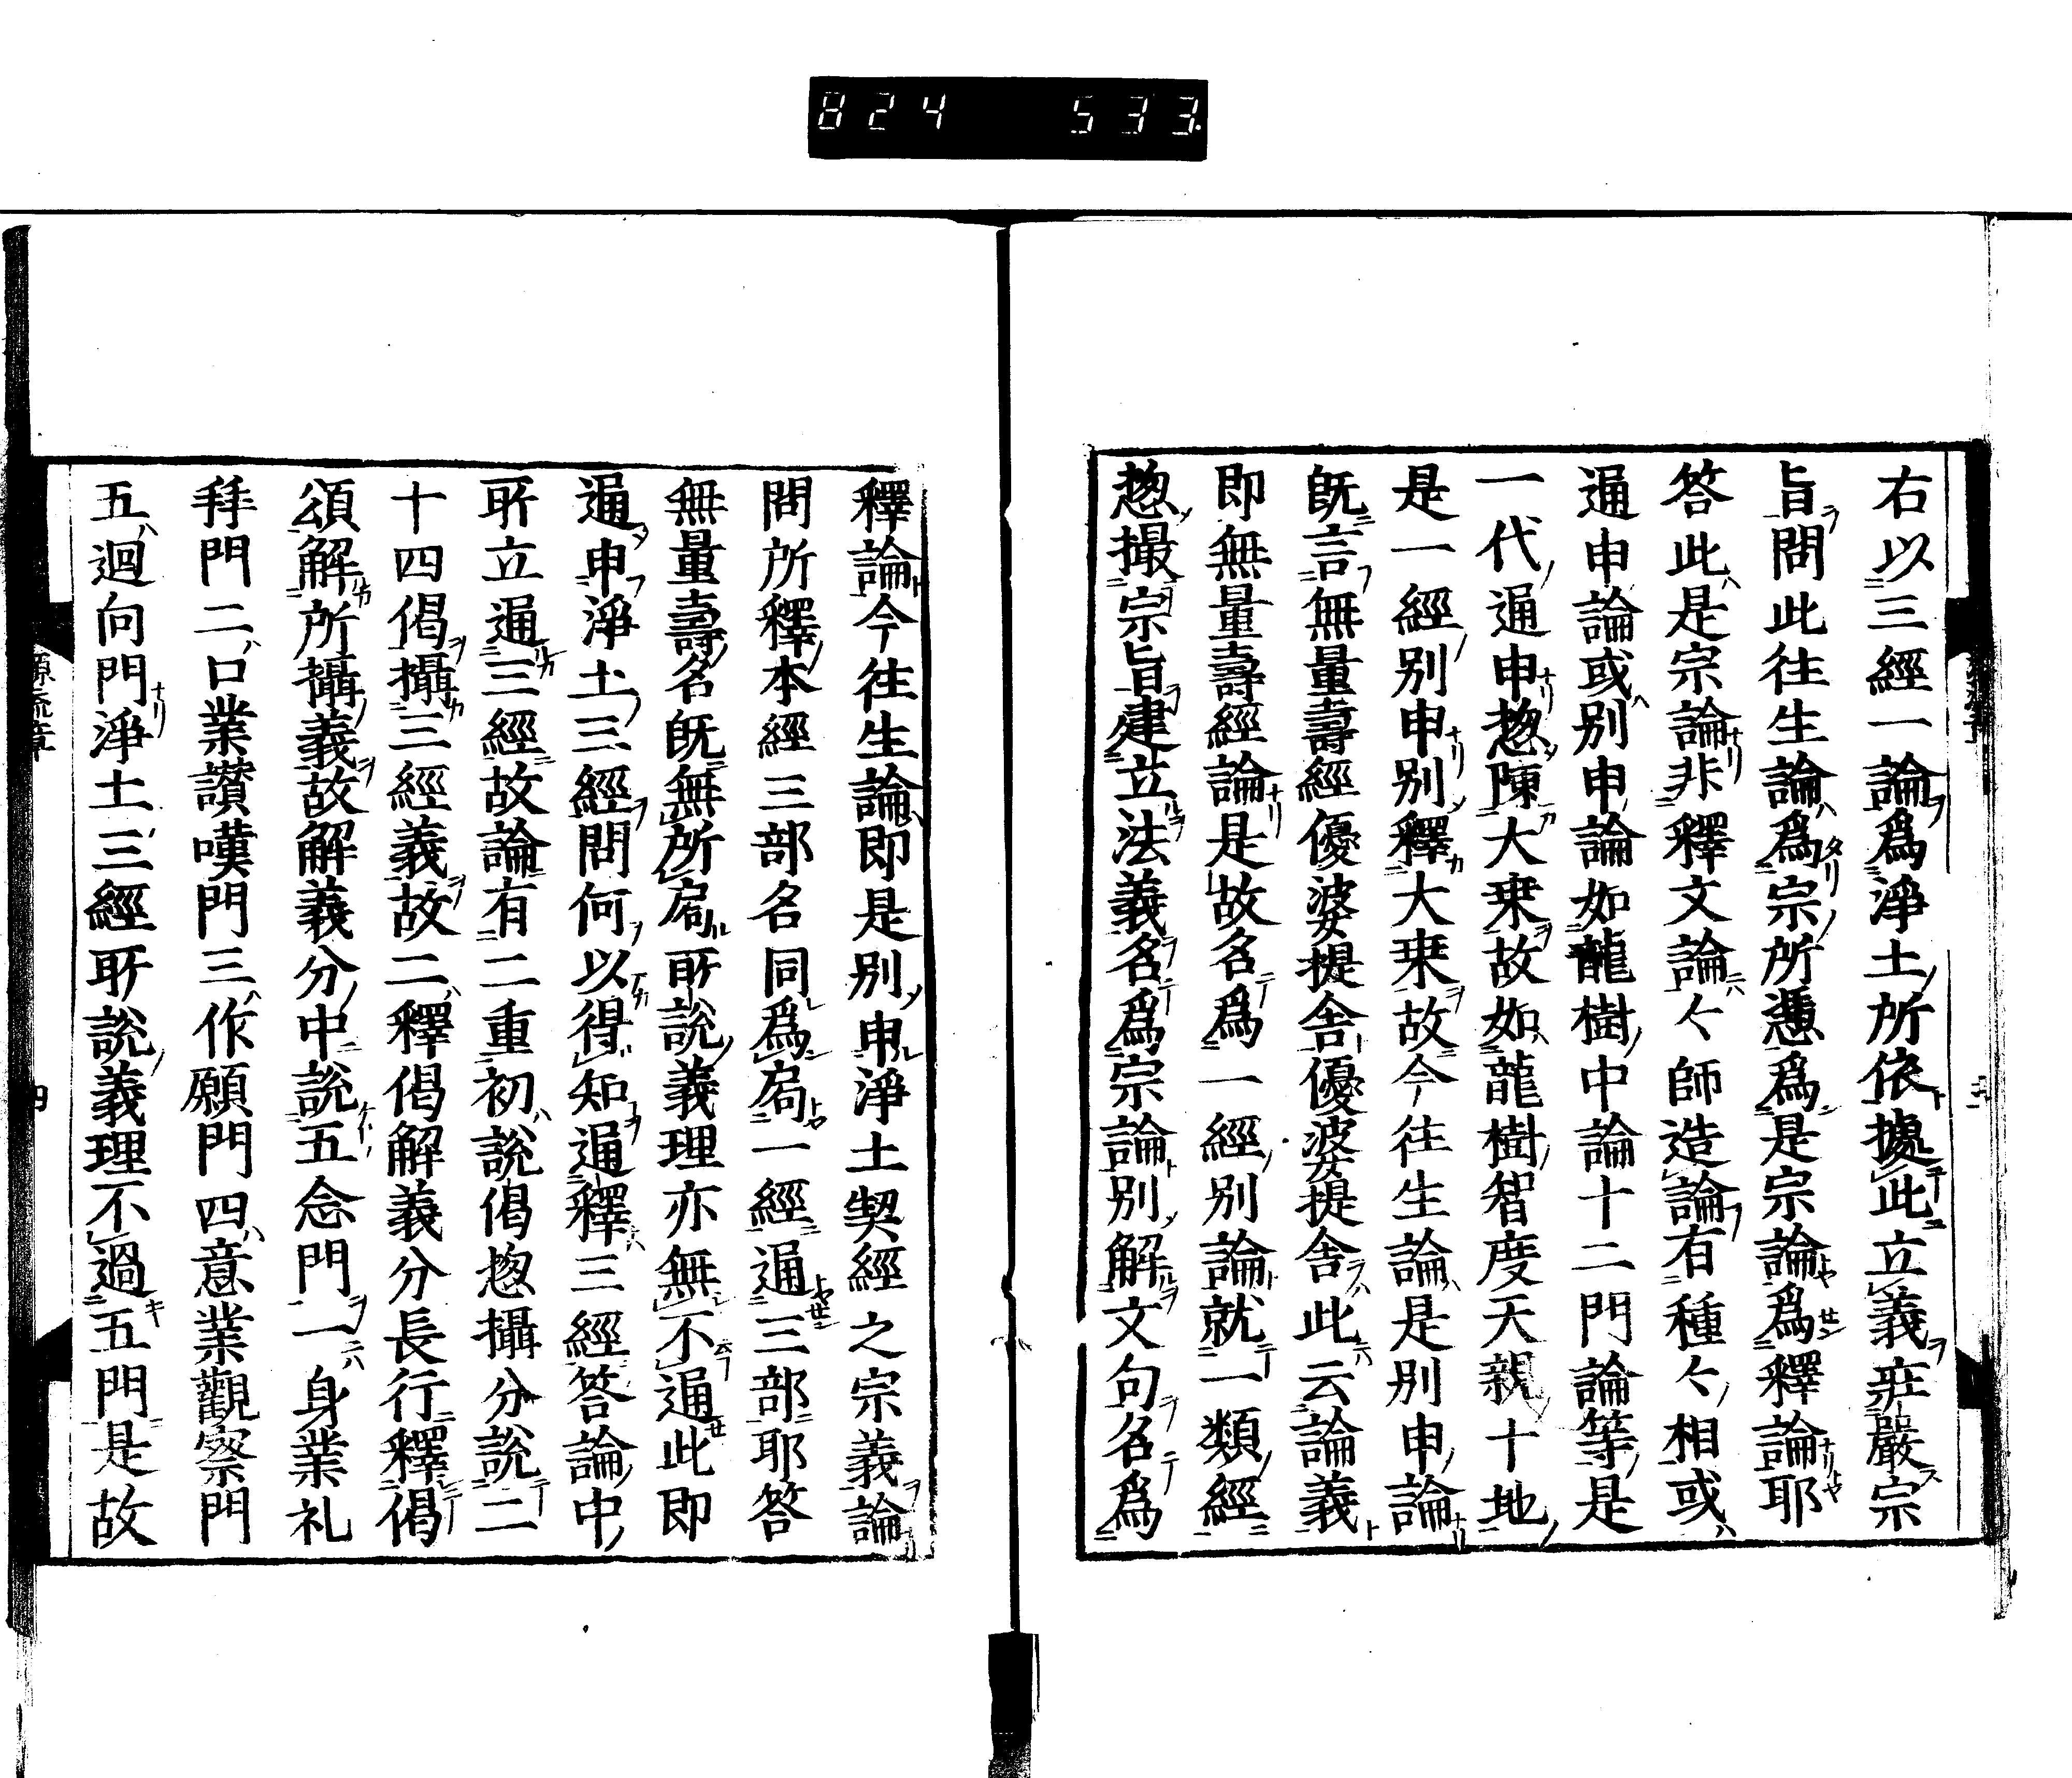 824 533
右以三經一論爲淨土所依據此立義莊嚴宗
旨問此往生論爲宗所憑爲是宗論爲釋論耶
答此是宗論非釋文論論々師造論有種々相或
通申論或別申論如龍樹中論十二門論等是
一代通申惣陳大乗故如龍樹智度天親十地
是一經別申別釋大乗故今往生論是別申論
既言無量壽經優婆提舍優婆提舍此云論義
即無量壽經論是故名爲一經別論就一類經
惣撮宗旨建立法義名爲宗論別解文句名爲
釋論今往生論即是別申淨土契經之宗義論
問所釋本經三部名同爲局一經通三部耶答
無量壽名既無所局所說義理亦無不通此即
通申淨土三經問何以得知通釋三經答論中
所立通三經故論有二重初說偈惣攝分說二
十四偈攝三經義故二釋偈解義分長行釋偈
頌解所攝義故解義分中說五念門一身業礼
拜門二口業讃嘆門三作願門四意業觀察門
五迴向門淨土三經所說義理不過五門是故